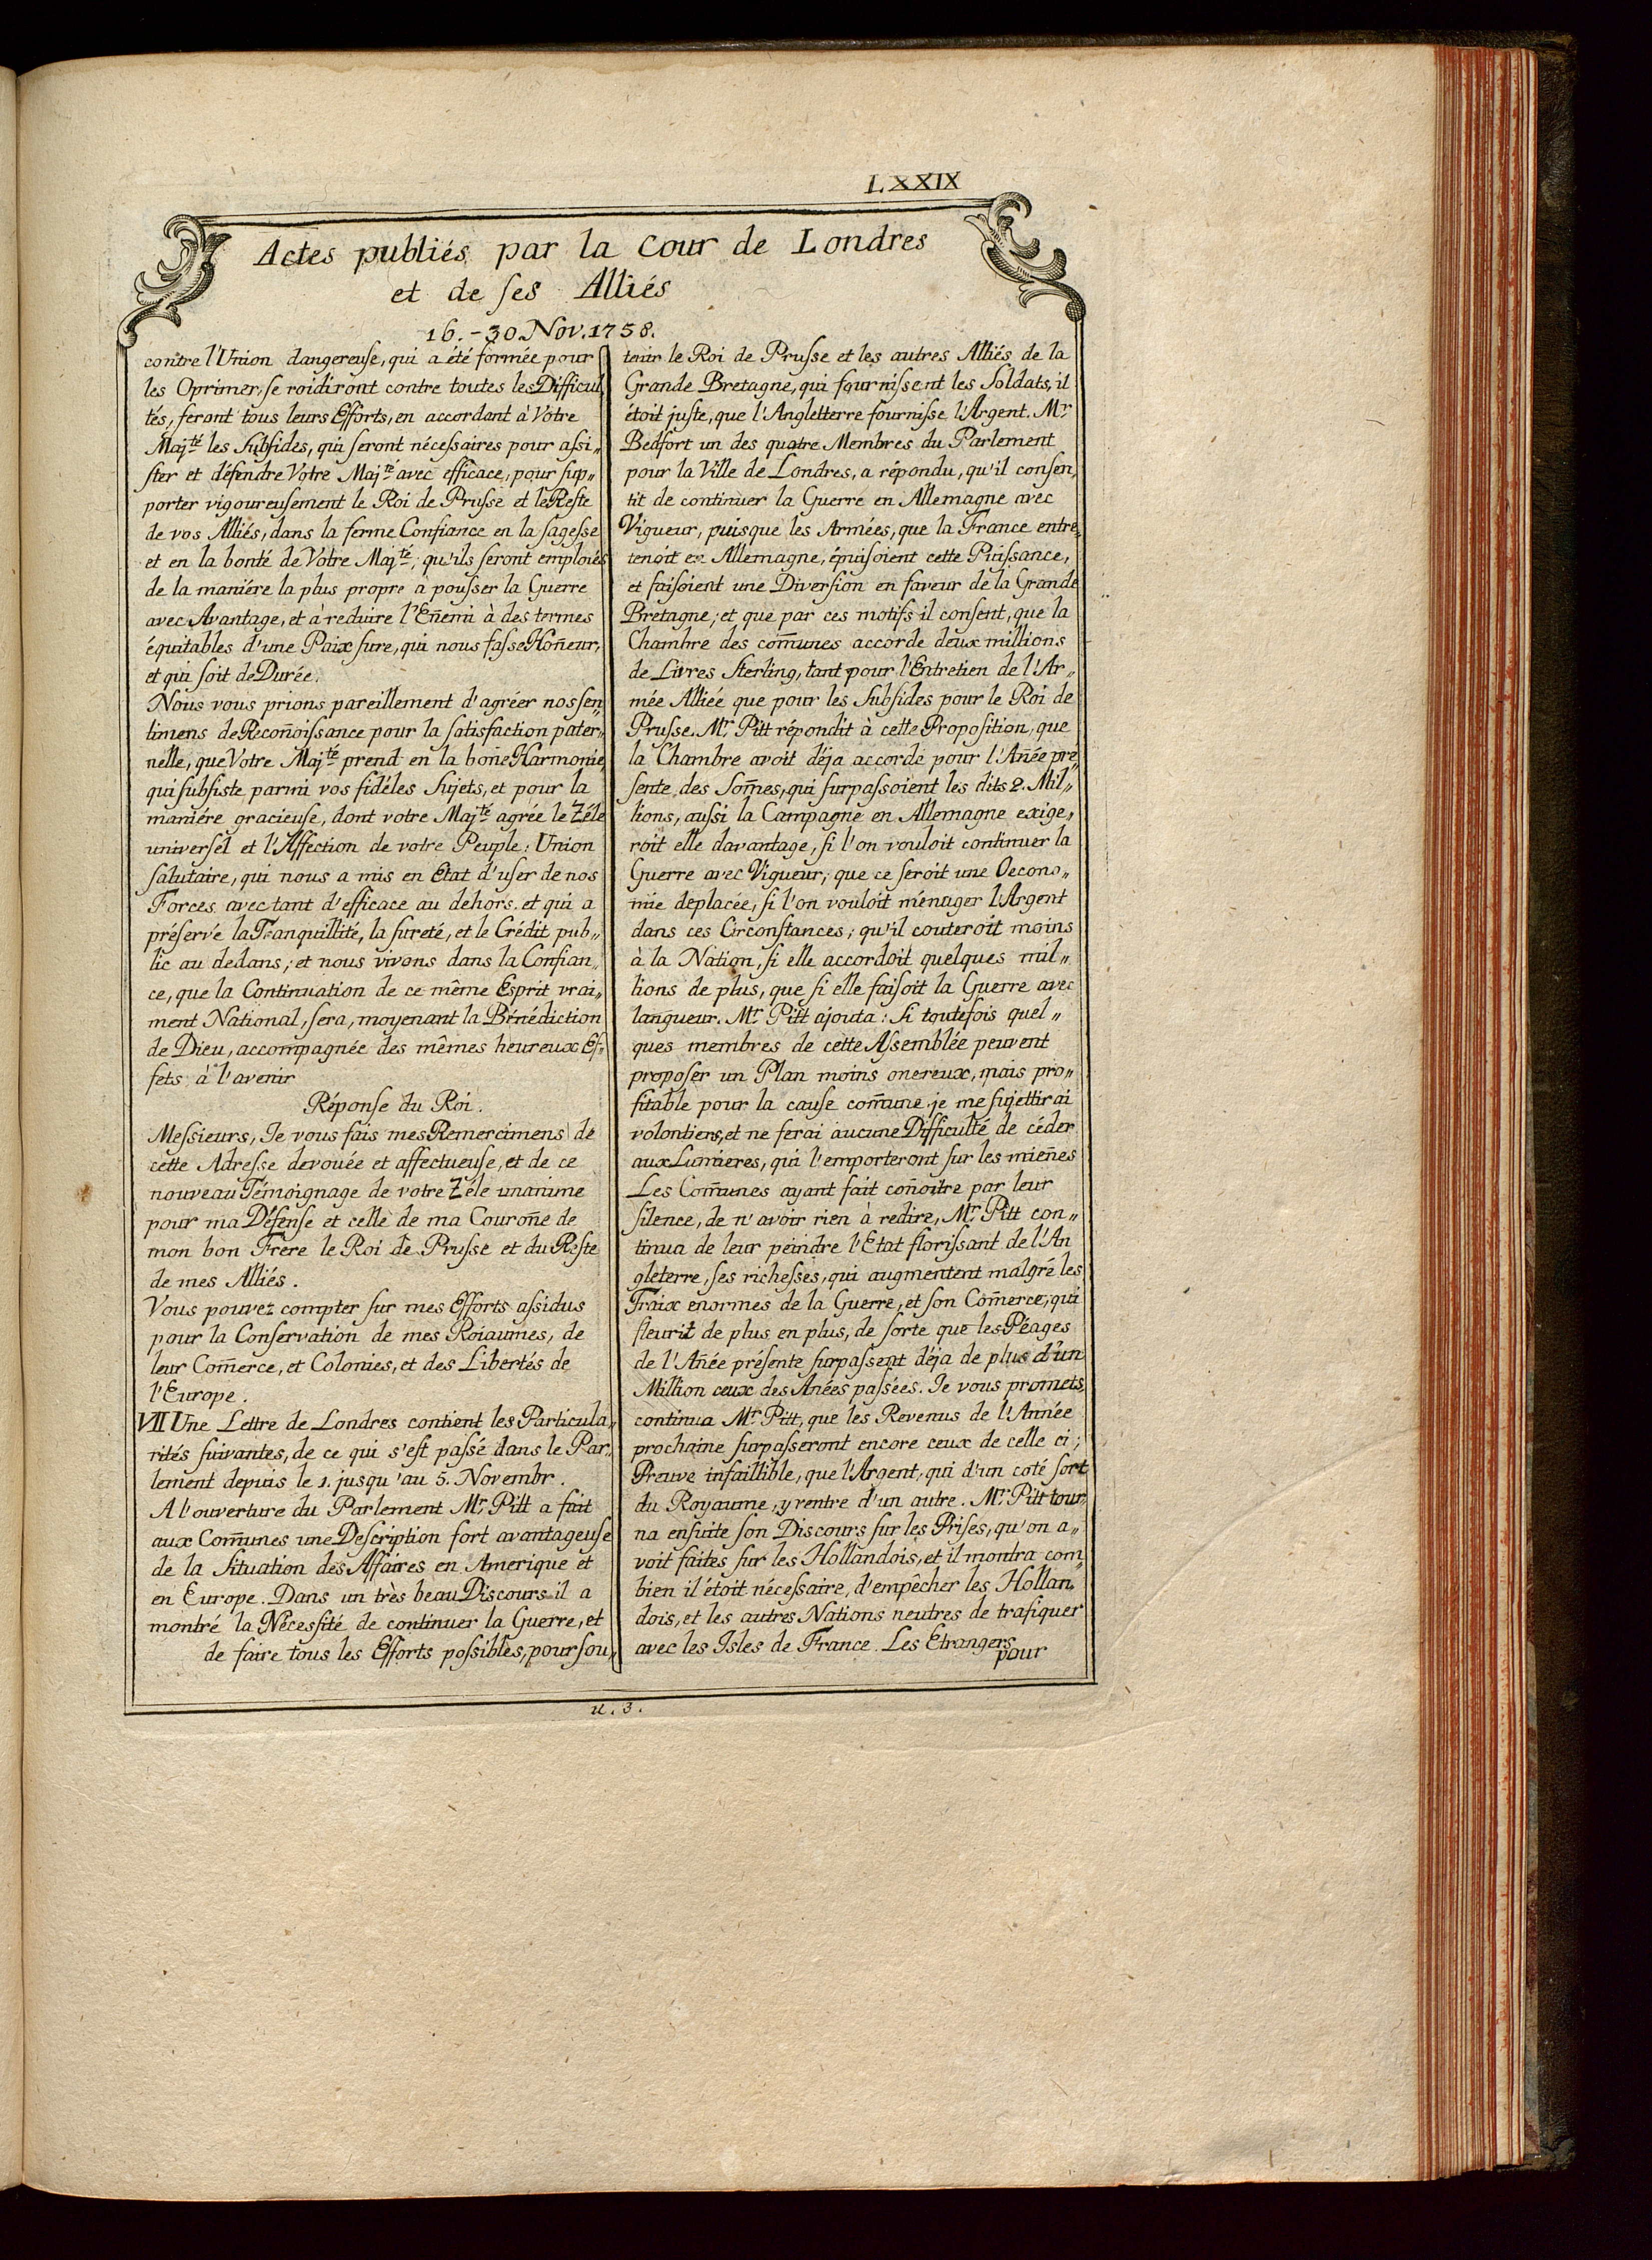 LXXIX
Actes publiés par la Cour de Londres
et de ſes Alliés
16.-30. Nov. 1758.
contre l'Union dangereuſe, qui a été formée pour
les Oprimer, ſe roidiront contre toutes les Difficul
tés, feront tous leurs Efforts, en accordant à Votre
Majté les Subſides, qui ſeront néceſsaires pour aſsi„
ſter et défendre Votre Majté avec efficace, pour ſup„
porter vigoureuſement le Roi de Pruſse et le Reſte
de vos Alliés, dans la ferme Confiance en la ſageſse
et en la bonté de Votre Majté, qu'ils ſeront emploiés
de la maniére la plus propre à pouſser la Guerre
avec Avantage, et à reduire l'Eñemi à des termes
équitables d'une Paix ſure, qui nous faſse Hoñeur,
et qui ſoit de Durée.
Nous vous prions pareillement d'agréer nos ſen„
timens de Recoñoiſsance pour la ſatisfaction pater„
nelle, que Votre Majté prend en la boñe Harmonie,
qui ſubſiste parmi vos fidéles Sujets, et pour la
maniére gracieuſe, dont votre Majté agrée le Zéle
univerſel et l'Affection de votre Peuple: Union
ſalutaire, qui nous a mis en Etat d'uſer de nos
Forces avec tant d'efficace au dehors. et qui a
préſervé la Tranquillité, la ſureté, et le Crédit pub„
lic au dedans; et nous vivons dans la Confian„
ce, que la Continuation de ce même Esprit vrai„
ment National, ſera, moyenant la Bénédiction
de Dieu, accompagnée des mêmes heureux Ef„
fets à l'avenir
Réponſe du Roi.
Meſsieurs, Je vous fais mes Remercimens de
cette Adreſse devouée et affectueuſe, et de ce
nouveau Témoignage de votre Zéle unanime
pour ma Défenſe et celle de ma Couroñe de
mon bon Frere le Roi de Pruſse et du Reſte
de mes Alliés.
Vous pouvez compter ſur mes Efforts aſsidus
pour la Conſervation de mes Roiaumes, de
leur Com̃erce, et Colonies, et des Libertés de
l'Europe.
VII Une Lettre de Londres contient les Particula„
rités ſuivantes, de ce qui s'eſt paſsé dans le Par„
lement depuis le 1. jusqu'au 5. Novembr.
A l'ouverture du Parlement Mr. Pitt a fait
aux Com̃unes une Deſcription fort avantageuſe
de la ſituation des Affaires en Amerique et
en Europe. Dans un très beau Discours il a
montré la Néceſſité de continuer la Guerre, et
de faire tous les Efforts poſsibles, pour ſou„
tenir le Roi de Pruſse et les autres Alliés de la
Grande Bretagne, qui fourniſsent les Soldats, il
étoit juſte, que l'Angletterre fourniſse l'Argent. Mr
Bedfort un des quatre Membres du Parlement
pour la Ville de Londres, a répondu, qu'il conſen„
tit de continuer la Guerre en Allemagne avec
Vigueur, puisque les Armées, que la France entre„
tenoit en Allemagne, épuiſoient cette Puiſsance,
et faiſoient une Diverſion en faveur de la Grande
Bretagne; et que par ces motifs il conſent, que la
Chambre des com̃unes accorde deux millions
de Livres ſterling, tant pour l'Entretien de l'Ar„
mée Alliéé que pour les Subſides pour le Roi de
Pruſse. Mr. Pitt répondit à cette Propoſition, que
la Chambre avoit déja accordé pour l'Añée pré„
ſente des Som̃es, qui ſurpaſsoient les dits 2. Mil„
lions, auſsi la Campagne en Allemagne exige„
roit elle davantage, ſi l'on vouloit continuer la
Guerre avec Vigueur; que ce ſeroit une Oecono„
mie deplacée, ſi l'on vouloit ménager l'Argent
dans ces Circonſtances; qu'il couteroit moins
à la Nation, ſi elle accordoit quelques mil„
lions de plus, que ſi elle faiſoit la Guerre avec
langueur. Mr. Pitt ajouta: Si toutefois quel„
ques membres de cette Aſsemblée peuvent
propoſer un Plan moins onereux, mais pro„
fitable pour la cauſe com̃une je me ſujettirai
volontiers, et ne ferai aucune Difficulté de céder
aux Lumieres, qui l'emporteront ſur les mieñes
Les Com̃unes ayant fait coñoitre par leur
ſilence, de n'avoir rien à redire, Mr. Pitt con„
tinua de leur peindre l'Etat floriſsant de l'An
gleterre, ſes richeſses, qui augmentent malgré les
Fraix enormes de la Guerre, et ſon Com̃erce, qui
fleurit de plus en plus, de ſorte que les Péages
de l'Añée préſente ſurpaſsent déja de plus d'un
Million ceux des Anées paſsées. Je vous promets,
continua Mr. Pitt, que les Revenus de l'Année
prochaine ſurpaſseront encore ceux de celle ci;
Preuve infaillible, que l'Argent, qui d'un coté ſort
du Royaume, y rentre d'un autre. Mr. Pitt tour„
na enſuite ſon Discours ſur les Priſes, qu'on a„
voit faites ſur les Hollandois, et il montra com„
bien il étoit néceſsaire, d'empêcher les Hollan„
dois, et les autres Nations neutres de trafiquer
avec les Isles de France. Les Etrangers
pour
u. 3.